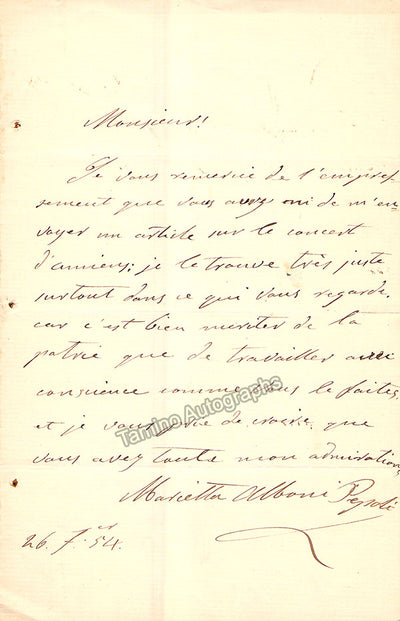 Monsieur!
Je vous remercie de l'empres-
sement que vous avez mi de m'en-
voyer un article sur le concert
d'amiens; je le trouve très juste
surtout dans ce qui vous regarde,
car c'est bien meriter de la
patrie que de travailler avec
conscience comme vous le faites,
et je vous prie de croire, que
vous avez toute mon admiration,
Marietta Alboni Pepoli
26. 7.br 54.
Tamino Autographs